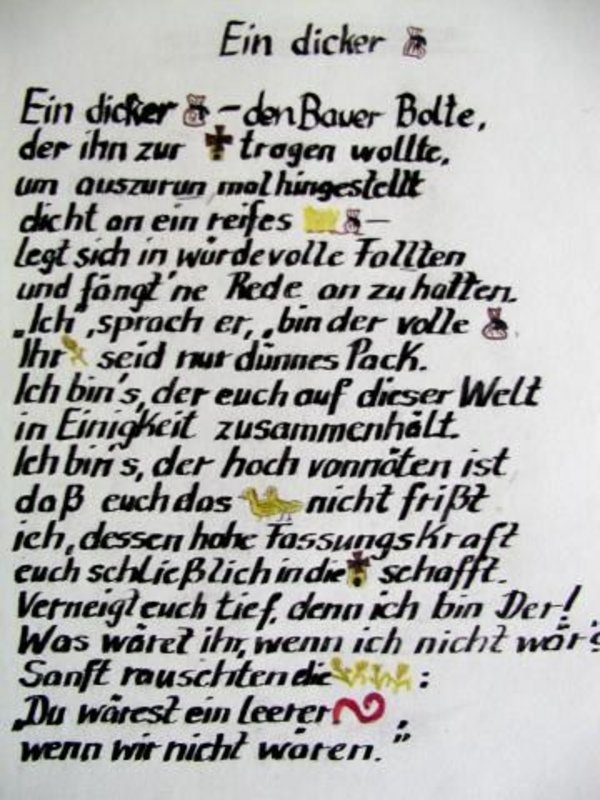 Ein dicker
Ein dicker – den Bauer Bolte,
der ihn zur tragen wollte,
um auszuruhn mal hingestellt
dicht an ein reifes –
legt sich in würdevolle Fallten
und fängt 'ne Rede an zu halten.
„Ich", sprach er, „bin der volle
Ihr seid nur dünnes Pack.
Ich bin's, der euch auf dieser Welt
in Einigkeit zusammenhält.
Ich bin's, der hoch vonnöten ist
daß euch das nicht frißt
ich, dessen hohe Fassungskraft
euch schließlich in die schafft.
Verneigt euch tief, denn ich bin Der!
Was wäret ihr, wenn ich nicht wär's
Sanft rauschten die :
„Du wärest ein leerer ,
wenn wir nicht wären."